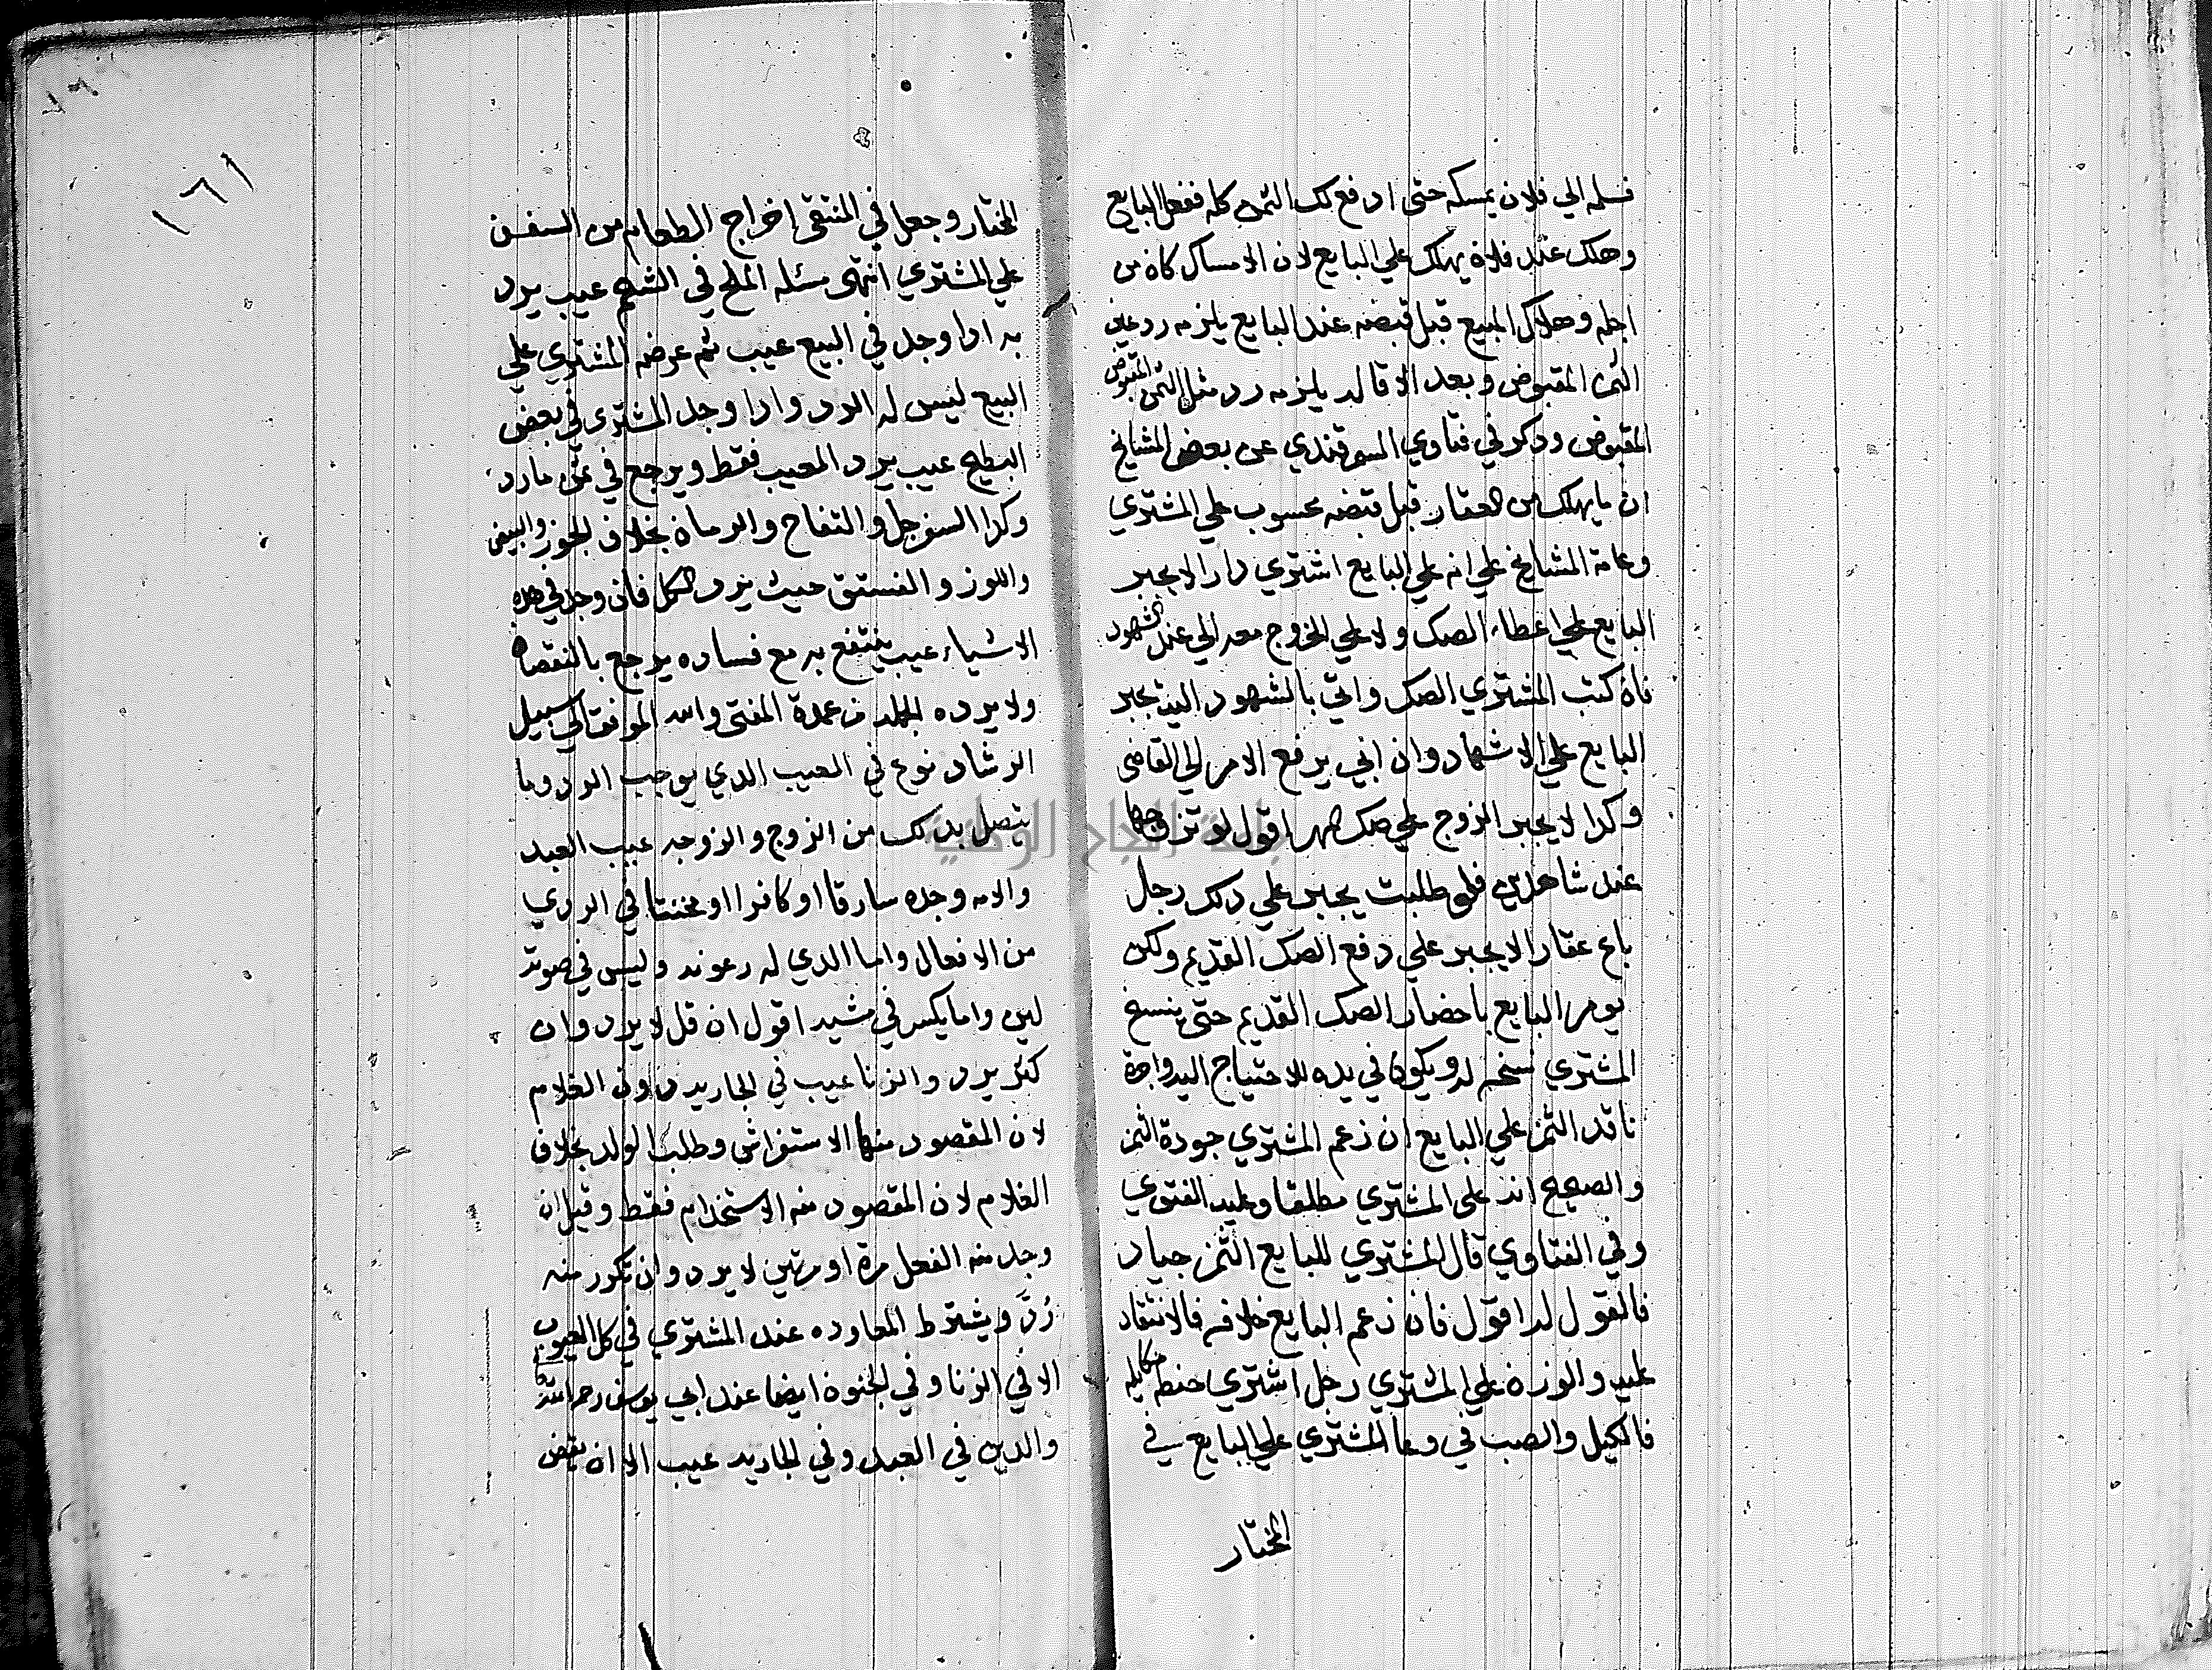 فسلمه الي فلان يمسكه حتى ادفع لك الثمن كله ففعل البايع
وهلك عند فلان يهلك علي البايع لان الامساك كان من
اجله وهلاك المبيع قبل قبضه عند البايع يلزمه رد عين
الثمن المقبوض وبعد الاقاله يلزمه رد مثل الثمن المقبوض
المقبوض ودكر في فتاوي السمرقندي عن بعض المشايخ
ان ما يهلك من العقار قبل قبضه محسوب علي المشتري
وعامة المشايخ علي انه علي البايع اشتري دارا لا يجبر
البايع علي اعطاء الصك ولا علي الخروج معه الي عند الشهود
فان كتب المشتري الصك واتي بالشهود اليه يجبر
البايع علي الاشهاد وان ابي يرفع الامر الي القاضي
وكدا لا يجبر الزوج علي صك المهر اقول لو تزوجها
عند شاهدين فلو طلبت يجبر علي دلك رجل
باع عقارا لا يجبر علي دفع الصك القديم ولكن
يومر البايع باحضار الصك القديم حتى ينسخ
المشتري نسخه له ويكون في يده للاحتياج اليه واجرة
ناقد الثمن علي البايع ان زعم المشتري جودة الثمن
والصحيح انه على المشتري مطلقا وعليه الفتوي
وفي الفتاوي قال المشتري للبايع الثمن جياد
فالقول له اقول فان زعم البايع خلافه فالانتقاد
عليه والوزن علي المشتري رجل اشتري حنطه مكايله
فالكيل والصب في وعا المشتري علي البايع في
المختار
١٦١
المختار وجعل في المنتقى اخراج الطعام من السفن
علي المشتري انتهى مسئله الملح في الشحم عيب يرد
به ادا وجد في البيع عيب ثم عرضه المشتري علي
البيع ليس له الرد وادا وجد المشترى في بعض
البطيخ عيب يرد المعيب فقط ويرجع في ثمن ما رد
وكدا السفرجل والتفاح والرمان بخلاف الجوز والبيض
واللوز والفستق حيث يرد الكل فان وجد في هده
الاشياء عيب ينتفع به مع فساده يرجع بالنقصان
ولا يرده الجمله من عمدة المفتى والله الموفق الي سبيل
الرشاد نوع في العيب الدي يوجب الرد وما
يتصل بدلك من الزوج والزوجه عيب العبد
والامه وجده سارقا او كافرا او مخنثا في الردي
من الافعال واما الدي له رعونه وليس في صوته
لين واما يكسر في مشيه اقول ان قل لا يرد وان
كثر يرد والزنا عيب في الجاريه دون الغلام
لان المقصود منها الاستفراش وطلب الولد بخلاف
الغلام لان المقصود منه الاستخدام فقط وقيل ان
وجد منه الفعل مرة او مرتين لا يرد وان تكرر منه
رُدَّ ويشترط المعاوده عند المشتري في كل العيوب
الا في الزنا وفي الجنون ايضا عند ابي يوسف رحمه الله
والدين في العبد وفي الجاريه عيب الا ان يقض
جامعة النجاح الوطنية